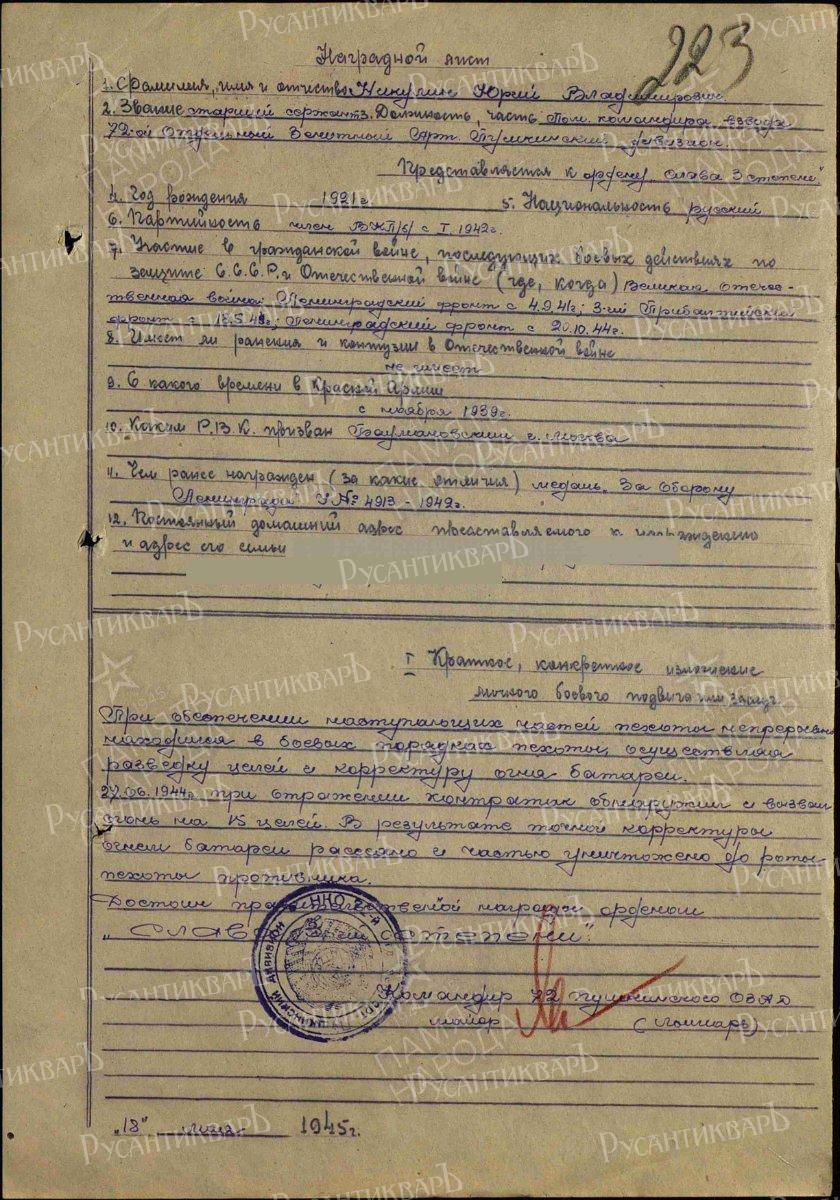 223
Наградной лист
1. Фамилия, имя и отчество Никулин Юрий Владимирович
2. Звание старший сержант 3. Должность, часть Пом. командира взвода
72-ой Отдельный Зенитный Арт. Пушкинский дивизион.
Представляется к ордену "Слава 3 степени"
4. Год рождения 1921 г. 5. Национальность русский
6. Партийность член ВКП/б/ с I. 1942г.
7. Участие в гражданской войне, последующих боевых действиях по
защите С.С.С.Р. и Отечественной войне (где, когда) Великая отече-
ственная война: Ленинградский фронт с 4.9.41г; 3-ий Прибалтийский
фронт с; Ленинградский фронт с 20.10.44г.
8. Имеет ли ранения и контузии в Отечественной войне
не имеет
9. С какого времени в Красной Армии
с ноября 1939г.
10. Каким Р.В.К. призван Баумановский г. Москва
11. Чем ранее награжден (за какие отличия) медаль "За Оборону
Ленинграда"
12. Постоянный домашний адрес представляемого к награждению
и адрес его семьи
I Краткое, конкретное изложение
личного боевого подвига или заслуг
При обеспечении наступающих частей пехоты непрерывно
находился в боевых порядках пехоты, осуществляя
разведку целей и корректуру огня батареи.
27.06.1944г. при отражении контратак обнаружил и вызвал
огонь на 15 целей. В результате точной корректуры
огнем батареи рассеяно и частью уничтожено до роты
пехоты противника.
Достоин правительственной награды орденом
"Слава степени".
НКО
дивизион
Командир 72 Пушкинского ОЗАД
майор
"18" 1945г.
РусАнтикварЪ
ПАМЯТЬ НАРОДА